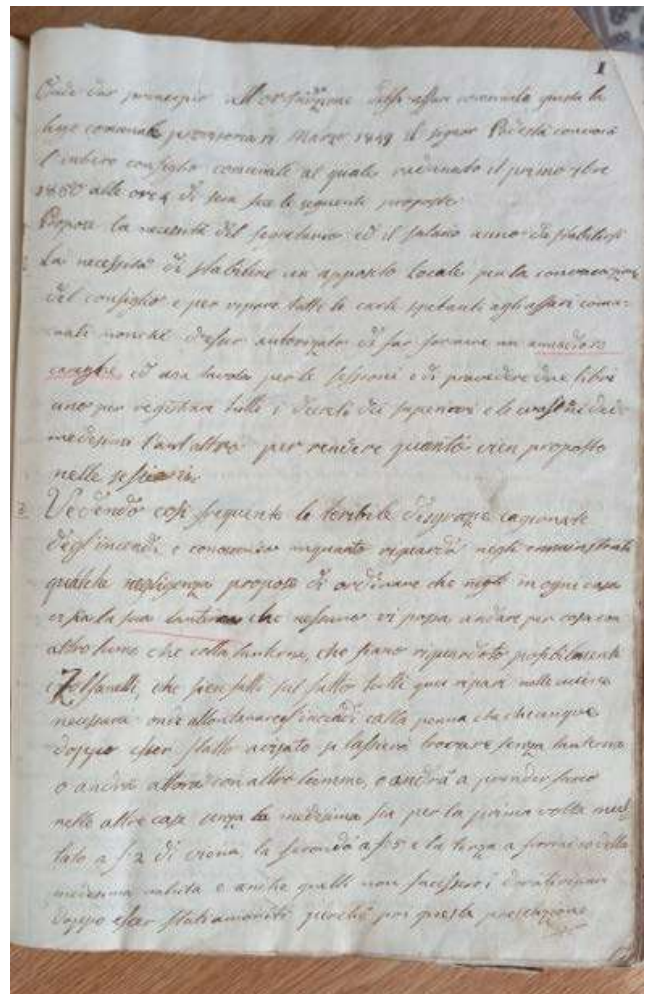 1
Onde dar principio all'organizzazione dessi affari comunali giusta la
legge comunale provvisoria 17 Marzo 1849 il signor Podestà convocò
l'intiero consiglio comunale al quale radunato il primo
1850 alle ore 4 di sera fece le seguenti proposte
Propose la necessità del secretario ed il salario anno da stabilirsi
La necessità di stabilire un apposito Locale per la convocazione
del consiglio e per riporre tutte le carte spetanti agli affari comu-
nali nonché d'esser autorizato di far fornire un
ed una tavola per le sessioni e di provedere due libri
uno per registrare tutti i decreti dei superiori e le dei
medesimi l'ant altro per rendere quanto vien proposto
nelle sessioni
3 Vedendo così frequente le teribile disgrazie cagionate
degl'incendi e conoscendo inquanto riguardo negli amministrati
qualche negligenza propose di ordinare che in ogni casa
vi sia la sua lanterna che nessuno vi possa andare per casa con
altro lume che colla lanterna, che siano riguardato possibilmente
i Zolfanelli, che sien fatti sul fatto tutti quei ripari nelle cucine
necessari onde allontanare gl'incendi colla penna che chiunque
doppo esser statto avisato si lascierà trovare senza lanterna
o andrà attorno con altro lumme, o andrà a prender fuoco
nelle altre case senza la medesima sia per la prima volta mul-
tato a f 2 di viena, la seconda a f 5 e la terza a fiorini 10 della
medesima valuta e anche quelli non facessero i dovuti ripari
doppo esser stati amoniti perchè per questa prescrizione